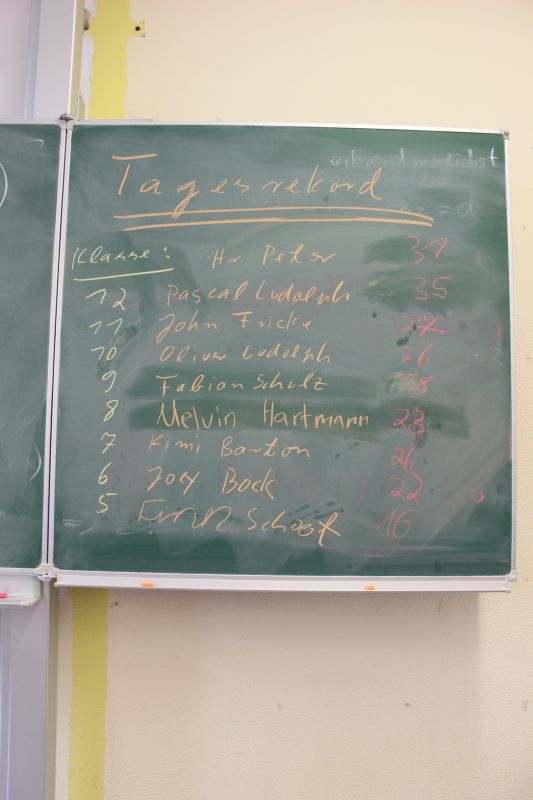 a, b, c, d möglichst
Tagesrekord
= d
Klasse: Hr Peter 31
12 Pascal Ludolph 35
11 John Fricke 27
10 Oliver Ludolph 26
9 Fabian Schulz 8
8 Melvin Hartmann 23
7 Kimi Barton 26
6 Joey Bock 22
5 Finn Schoof 16